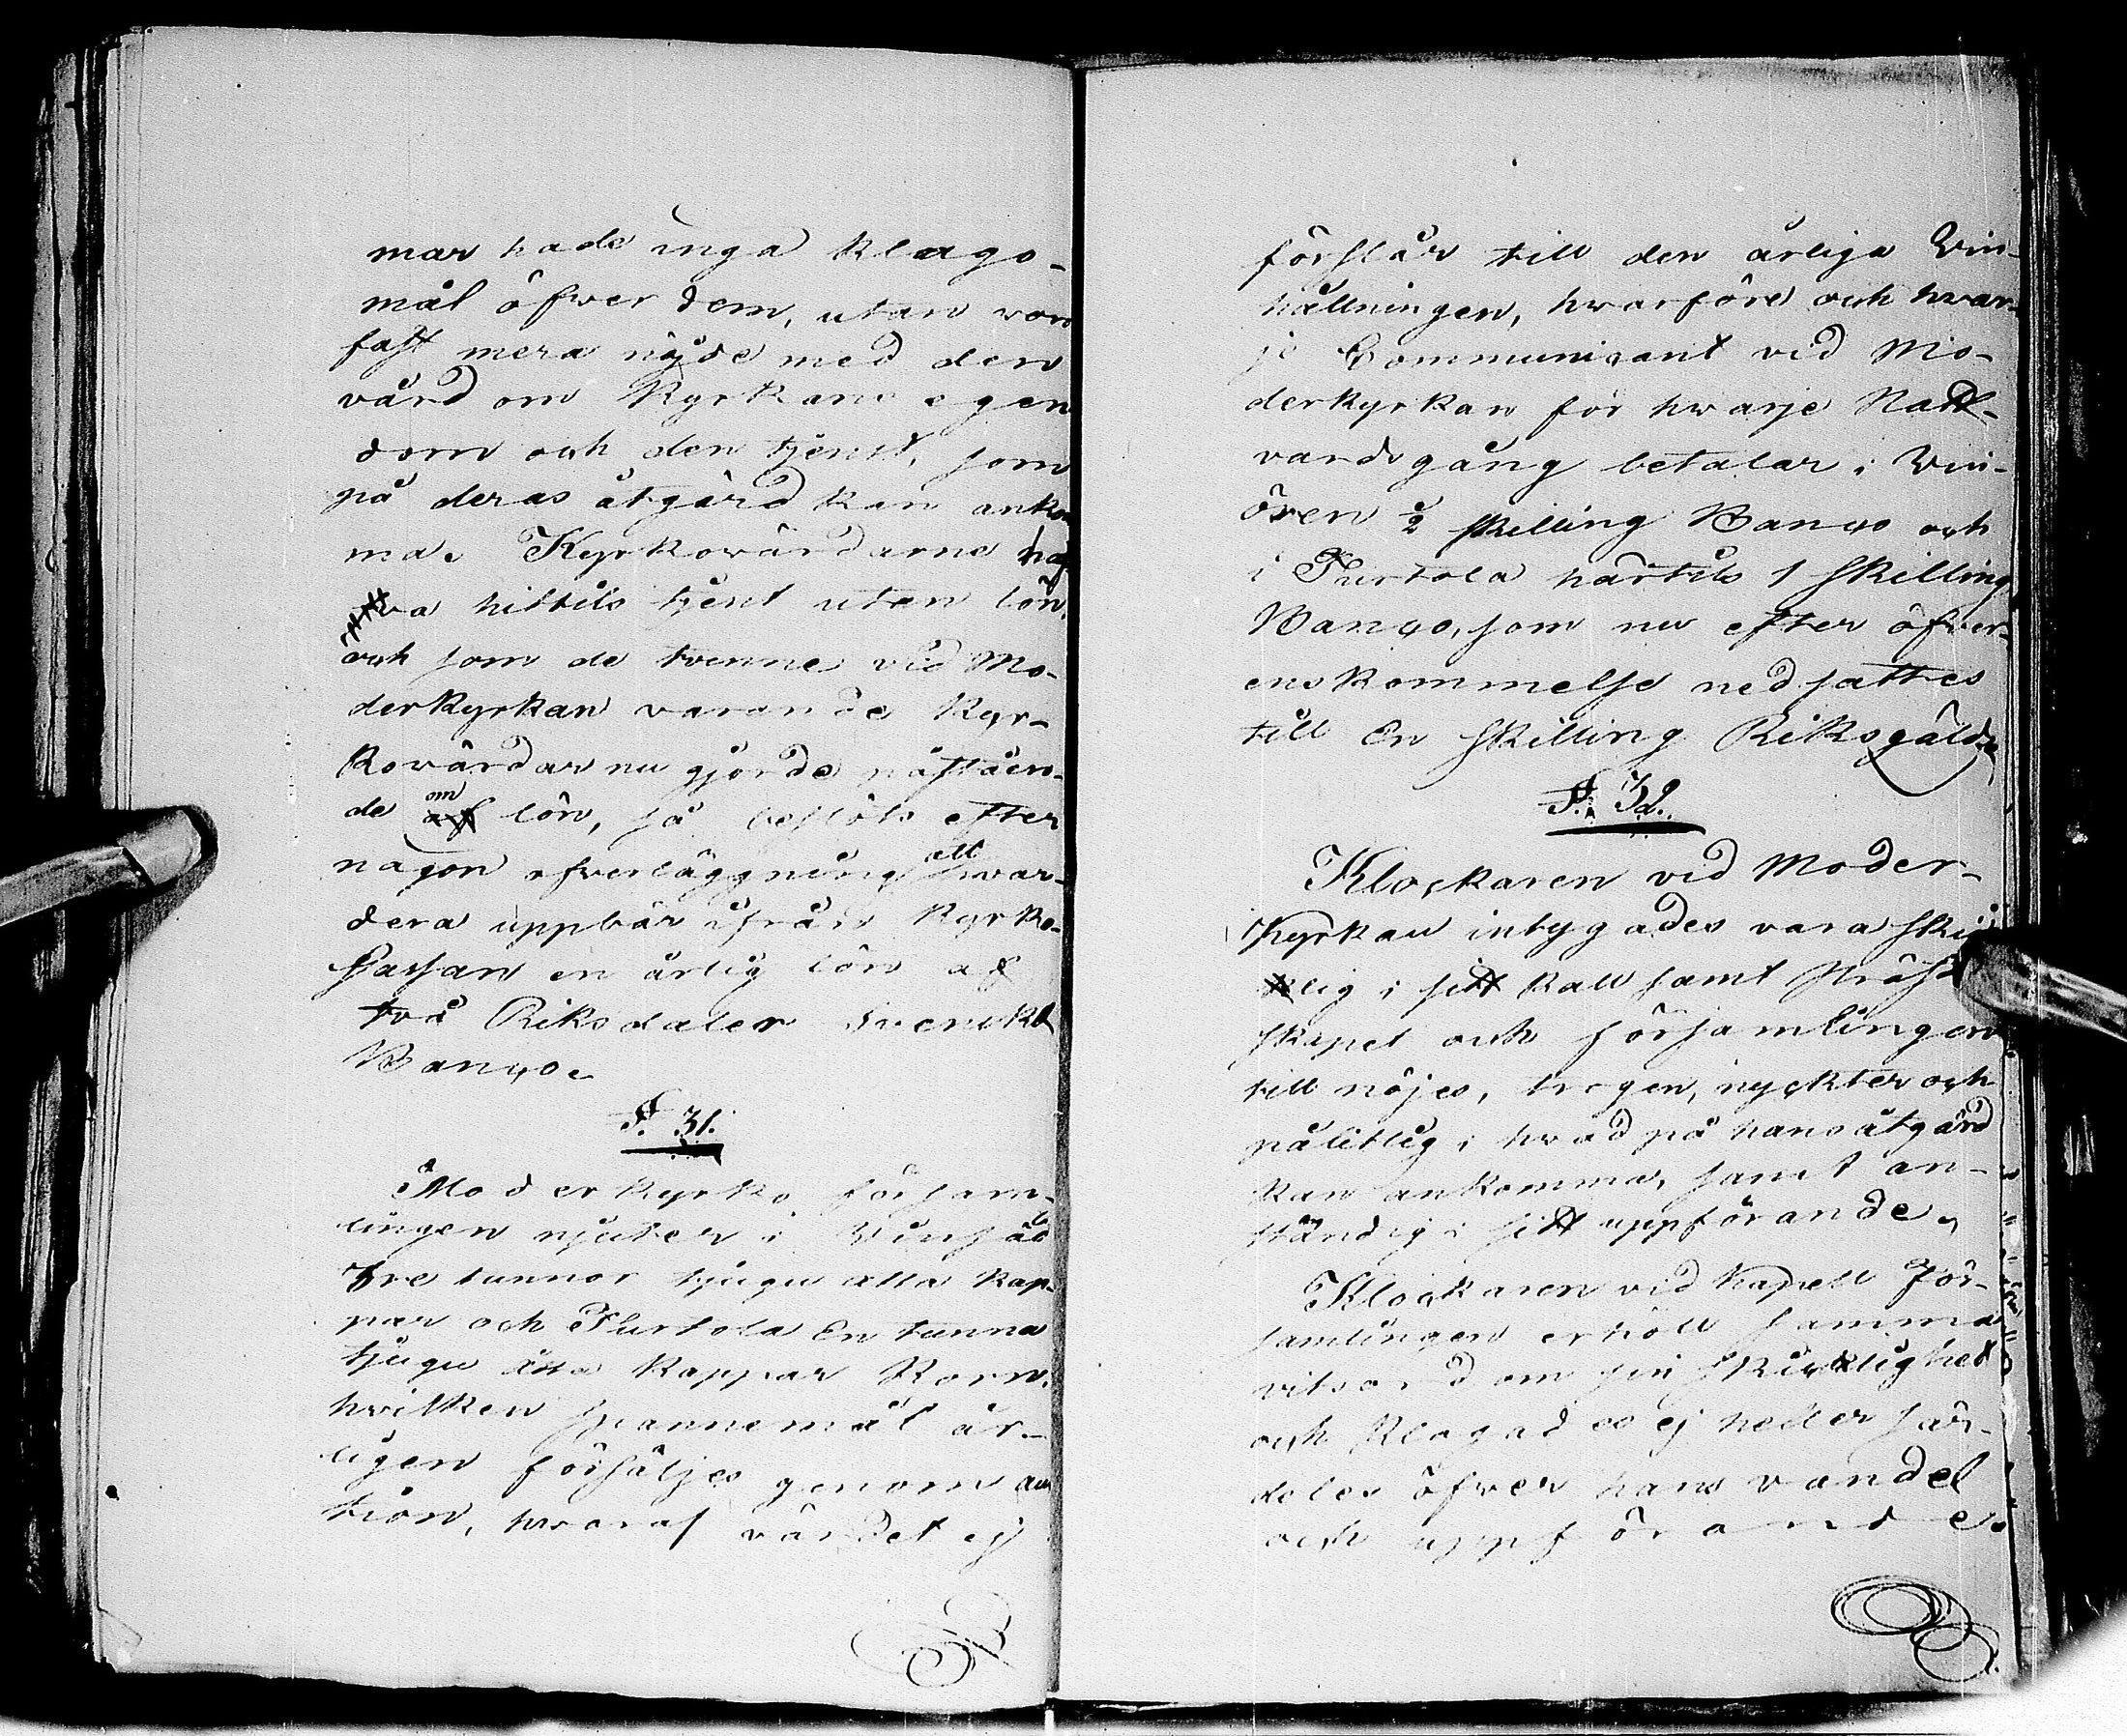 mar hade inga klago-
mål öfwer dem, utan voro
fast mera nöjde med den
vård om Kyrkans egen
dom och den tjenst, som
på deras åtgärd kan ankom
ma. Kyrkowärdarne haf
va hittils tjent utan lön,
och som de tvenne vid Mo-
derkyrkan varande Kyr-
kovärdar nu gjorde påståen-
de om lön, så beslöts efter
någon öfverläggning att hvar-
dera uppbär ifrån Kyrko-
Cassan en årlig lön af
två Riksdaler Svenskt
Banco.
§. 31.
Moderkyrko församlingen
lingen njuter i Vinsäd
Tre tunnor tjugu åtta kap-
par och Turtola En tunna
tjugu åtta kappar Korn,
hvilken spannemål år-
ligen försäljes genom auc
tion, hwaraf värdet ej
förslår till den årliga Vin-
hållningen, hwarföre och hwar-
je Communicant vid Mo-
derkyrkan för hwarje Natt-
vardsgång betalar i Vin-
ören ½ skilling Banco och
i Turtola härtils 1 skilling
Banco, som nu efter öfver-
enskommelse nedsattes
till En skilling Riksgälds
§. 32.
Klockaren vid Moder-
Kyrkan intygades vara skick
lig i sitt kall samt Präst
skapet och församlingen
till nöjes, trogen, nyckter och
pålitlig i hwad på hans åtgärd
kan ankomma, samt an-
ständig i sitt uppförande.
Klockaren vid Kapell För-
samlingen erhöll samma
vitsord om sin skicklighet
och klagades ej heller sär-
deles öfver hans vandel
och uppförande.